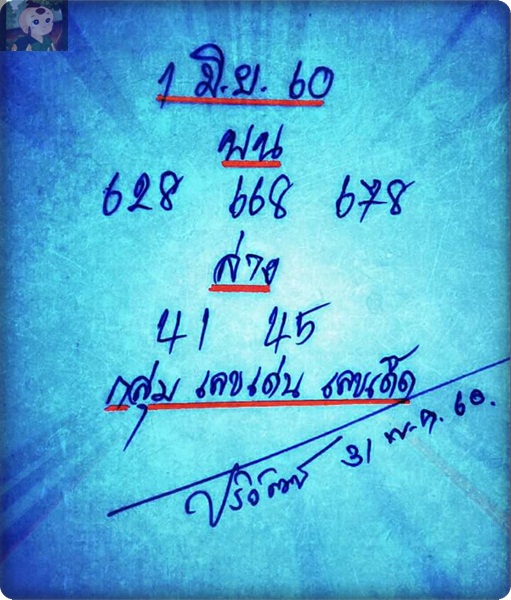 1 มิ.ย. 60
บน
628 668 678
ล่าง
41 45
กลุ่ม เลขเด่น เลขเด็ด
31 พ.ค. 60.